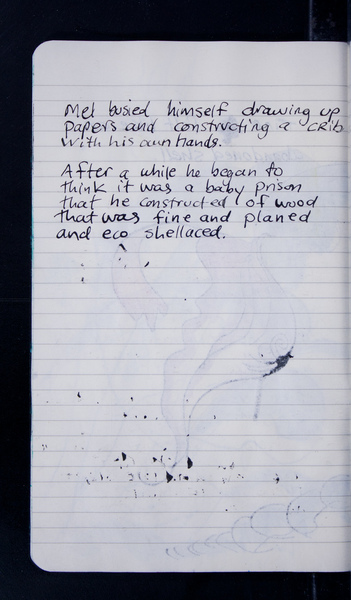 Mel busied himself drawing up
papers and constructing a crib
with his own hands.
After a while he began to
think it was a baby prison
that he constructed of wood
that was fine and planed
and eco shellaced.